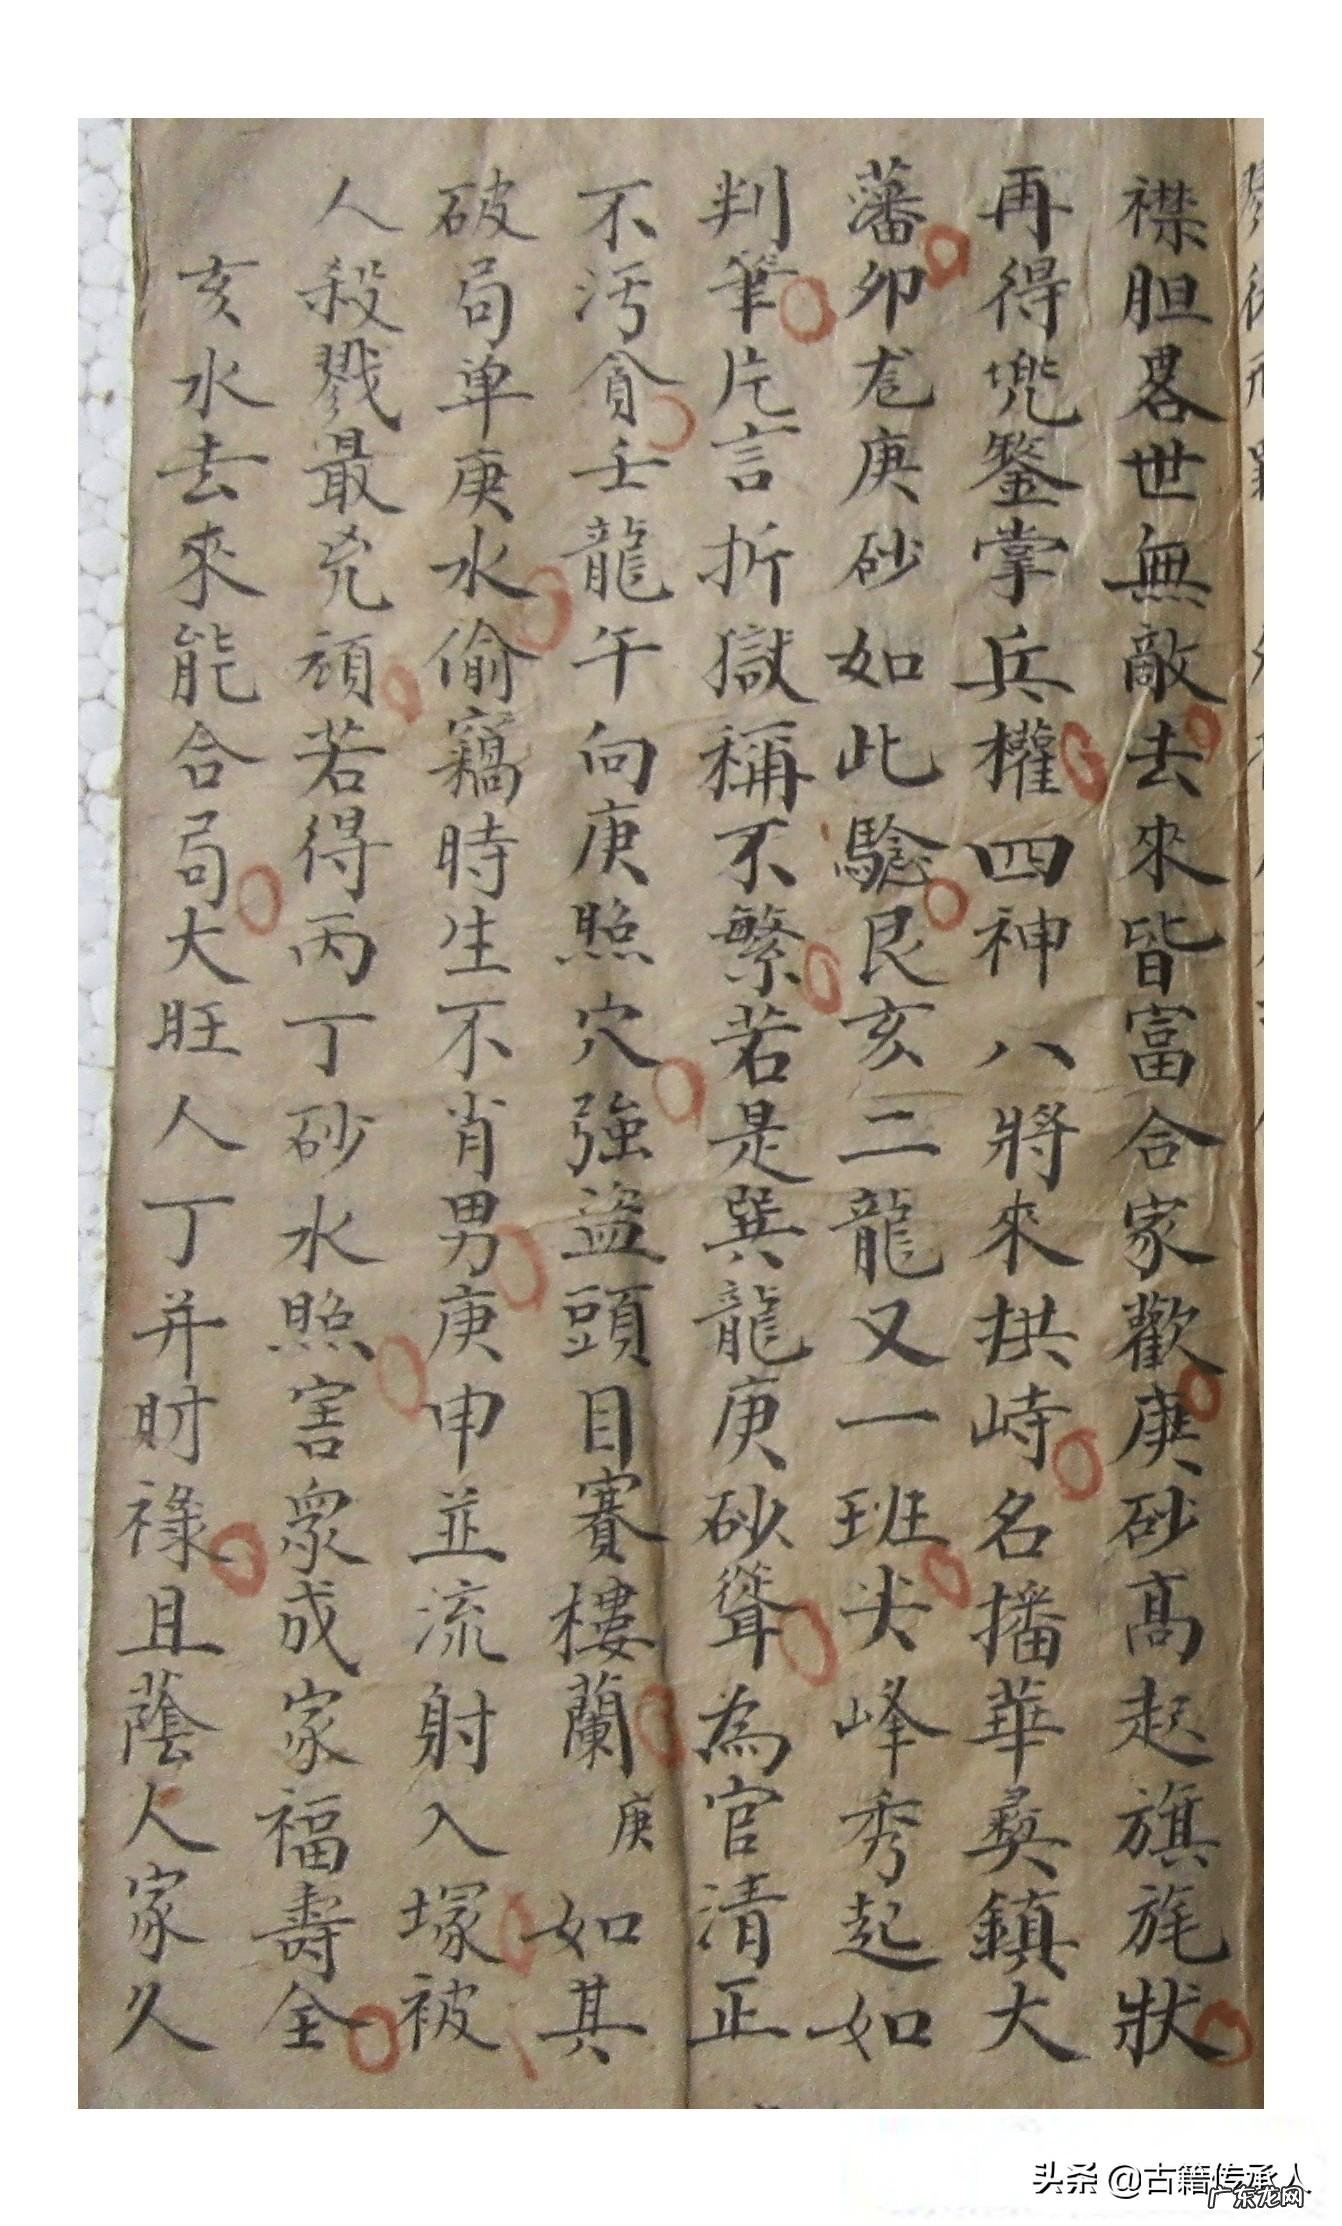 襟胆畧世無敵去來皆富合家歡庚砂高起旗旄狀
再得兠鍪掌兵權四神八將來拱峙名播華彜鎮大
藩卯龙庚砂如此騐艮亥二龍又一班尖峰秀起如
判筆片言折獄稱不繁若是巽龍庚砂聳為官清正
不污貪壬龍午向庚照穴強盜頭目賽樓蘭庚如其
破局单庚水偷竊時生不肖男庚申並流射入塚被
人殺戮最兇頑若得丙丁砂水照害衆成家福壽全
亥水去來能合局大旺人丁并財祿且蔭人家久
头条@古籍传承人
广东龙网